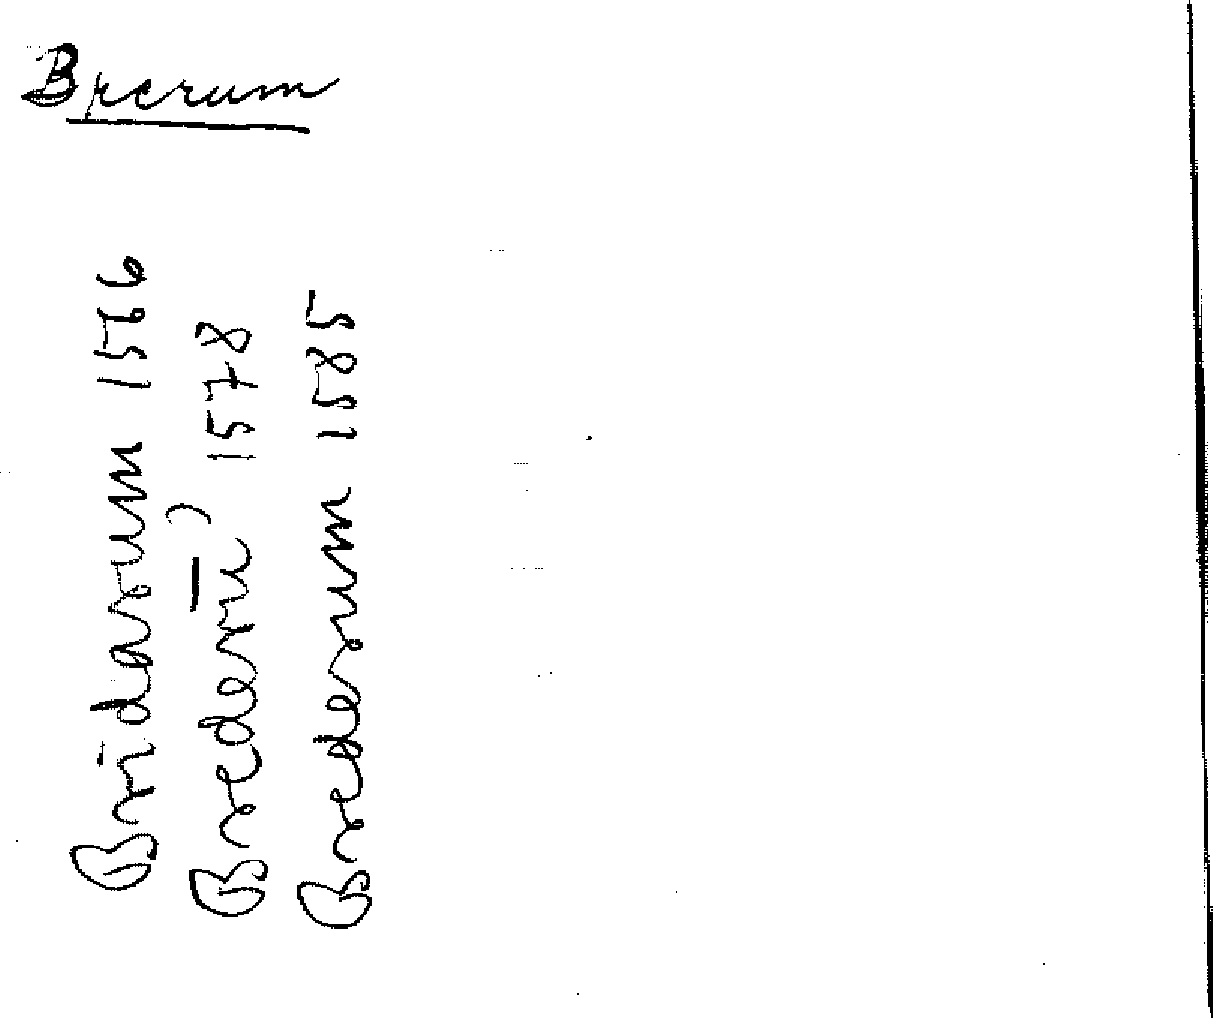 Brerum
Bridarum 1566
Brederū) 1578
Brederum 1585